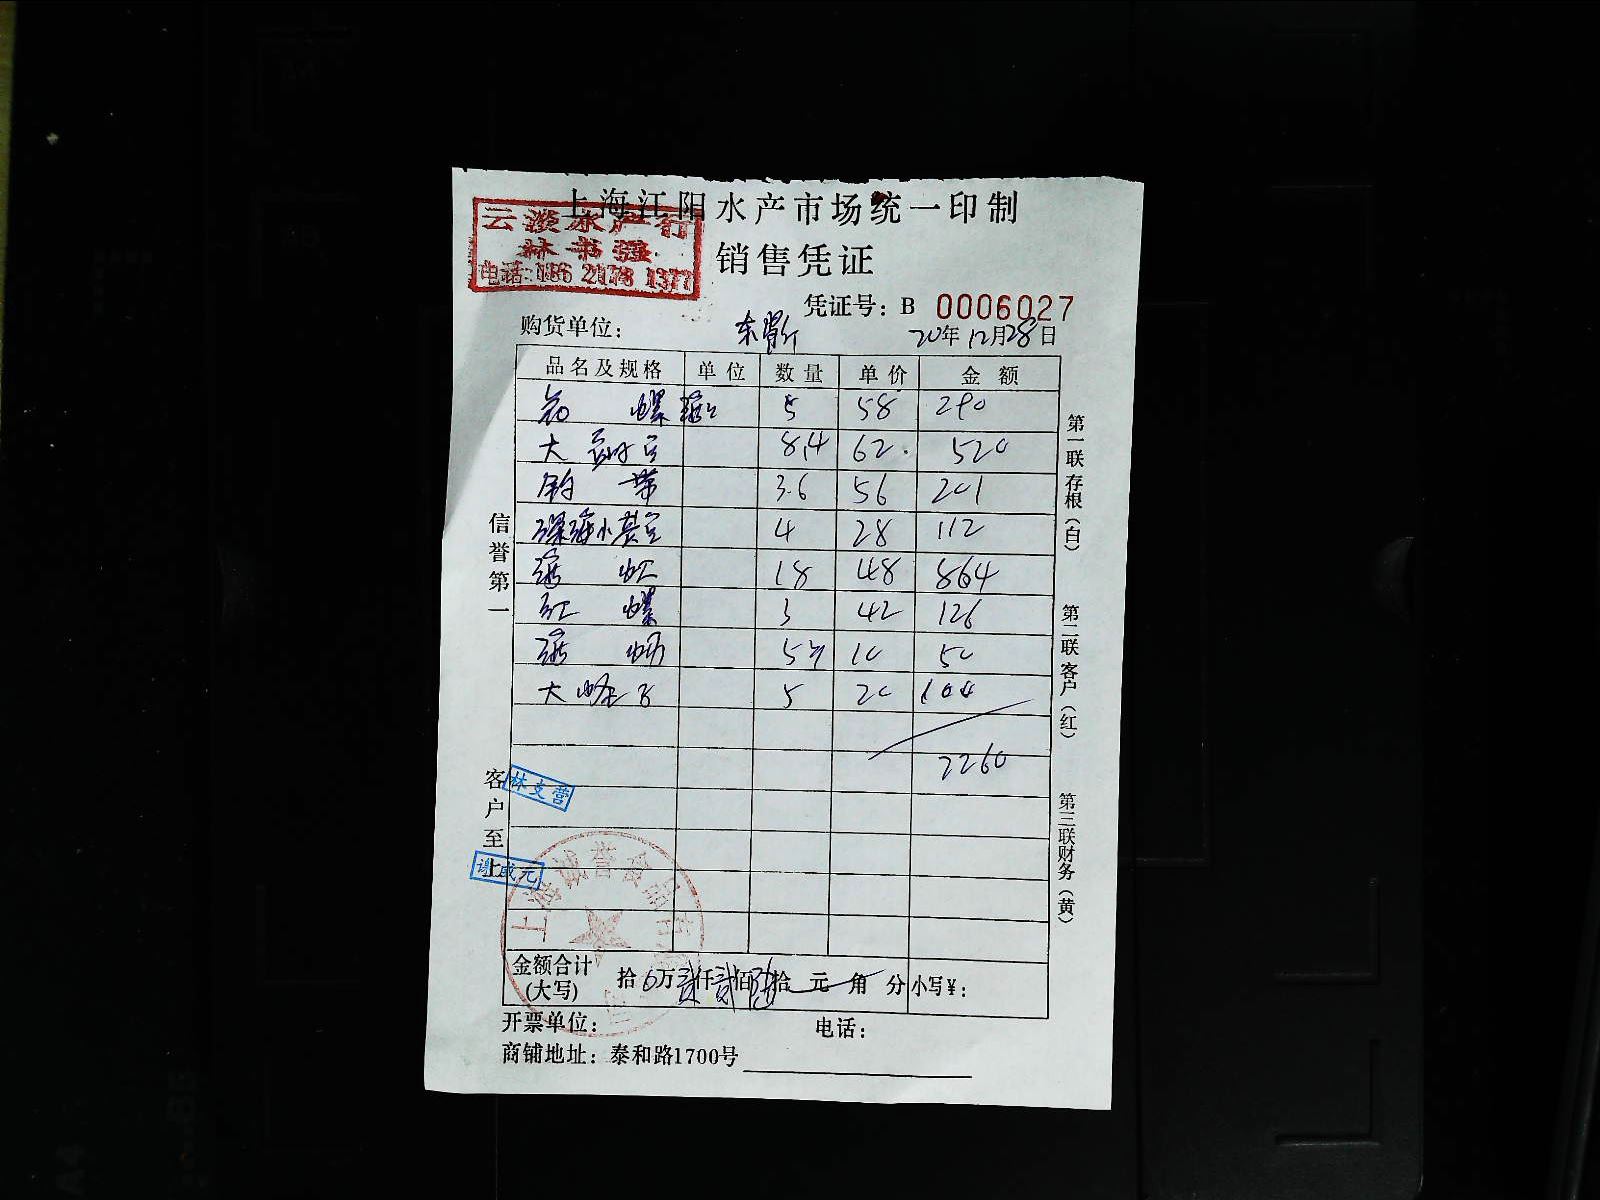 上海江阳水产市场统一印制
云淡水产行
林书强
电话:186 2178 1377
销售凭证
凭证号: B 0006027
购货单位:
20年12月28日
品名及规格 单位 数量 单价 金额
螺 5 58 290
大 8.4 62 520
带 3.6 56 201
深海小黄 4 28 112
18 48 864
红 螺 3 42 126
5 10 50
大 5 20 100
2260
信誉第一
客户至上
林支营
谢成元
第一联存根(白)
第二联客户(红)
第三联财务(黄)
金额合计(大写) 拾 万贰仟贰佰陆拾 元 角 分 小写¥:
开票单位: 电话:
商铺地址: 泰和路1700号